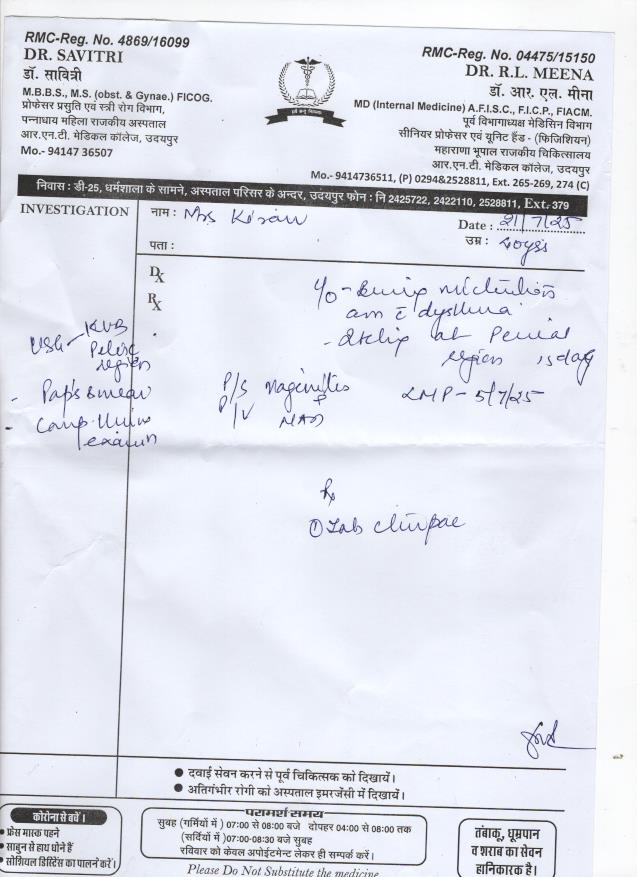 RMC-Reg. No. 4869/16099
DR. SAVITRI
डॉ. सावित्री
M.B.B.S., M.S. (obst. & Gynae.) FICOG.
प्रोफेसर प्रसुति एवं स्त्री रोग विभाग,
पन्नाधाय महिला राजकीय अस्पताल
आर.एन.टी. मेडिकल कॉलेज, उदयपुर
Mo.- 94147 36507
RMC-Reg. No. 04475/15150
DR. R.L. MEENA
डॉ. आर. एल. मीना
MD (Internal Medicine) A.F.I.S.C., F.I.C.P., FIACM.
पूर्व विभागाध्यक्ष मेडिसिन विभाग
सीनियर प्रोफेसर एवं यूनिट हैंड - (फिजिशियन)
महाराणा भूपाल राजकीय चिकित्सालय
आर.एन.टी. मेडिकल कॉलेज, उदयपुर
Mo.- 9414736511, (P) 0294&2528811, Ext. 265-269, 274 (C)
निवास : डी-25, धर्मशाला के सामने, अस्पताल परिसर के अन्दर, उदयपुर फोन : नि 2425722, 2422110, 2528811, Ext.-379
INVESTIGATION
नाम : Mrs Kiran
Date : 21/7/25
पता :
उम्र : 40yrs
Dx
Rx
USG - KUB
Pelvic
region
- Pap's smear
region 15day
P/S Vaginitis
P/V NAD
LMP - 5/7/25
Rx
① Tab
● दवाई सेवन करने से पूर्व चिकित्सक को दिखायें।
● अतिगंभीर रोगी को अस्पताल इमरजेंसी में दिखायें।
कोरोना से बचें।
● फ्रेस मास्क पहने
● साबुन से हाथ धोने हैं
● सोशियल डिस्टिेंस का पालने करें।
परामर्श समय
सुबह (गर्मियों में ) 07:00 से 08:00 बजे दोपहर 04:00 से 08:00 तक
(सर्दियों में) 07:00-08:30 बजे सुबह
रविवार को केवल अपोईटमेन्ट लेकर ही सम्पर्क करें।
तंबाकू, धूम्रपान
व शराब का सेवन
हानिकारक है।
Please Do Not Substitute the medicine